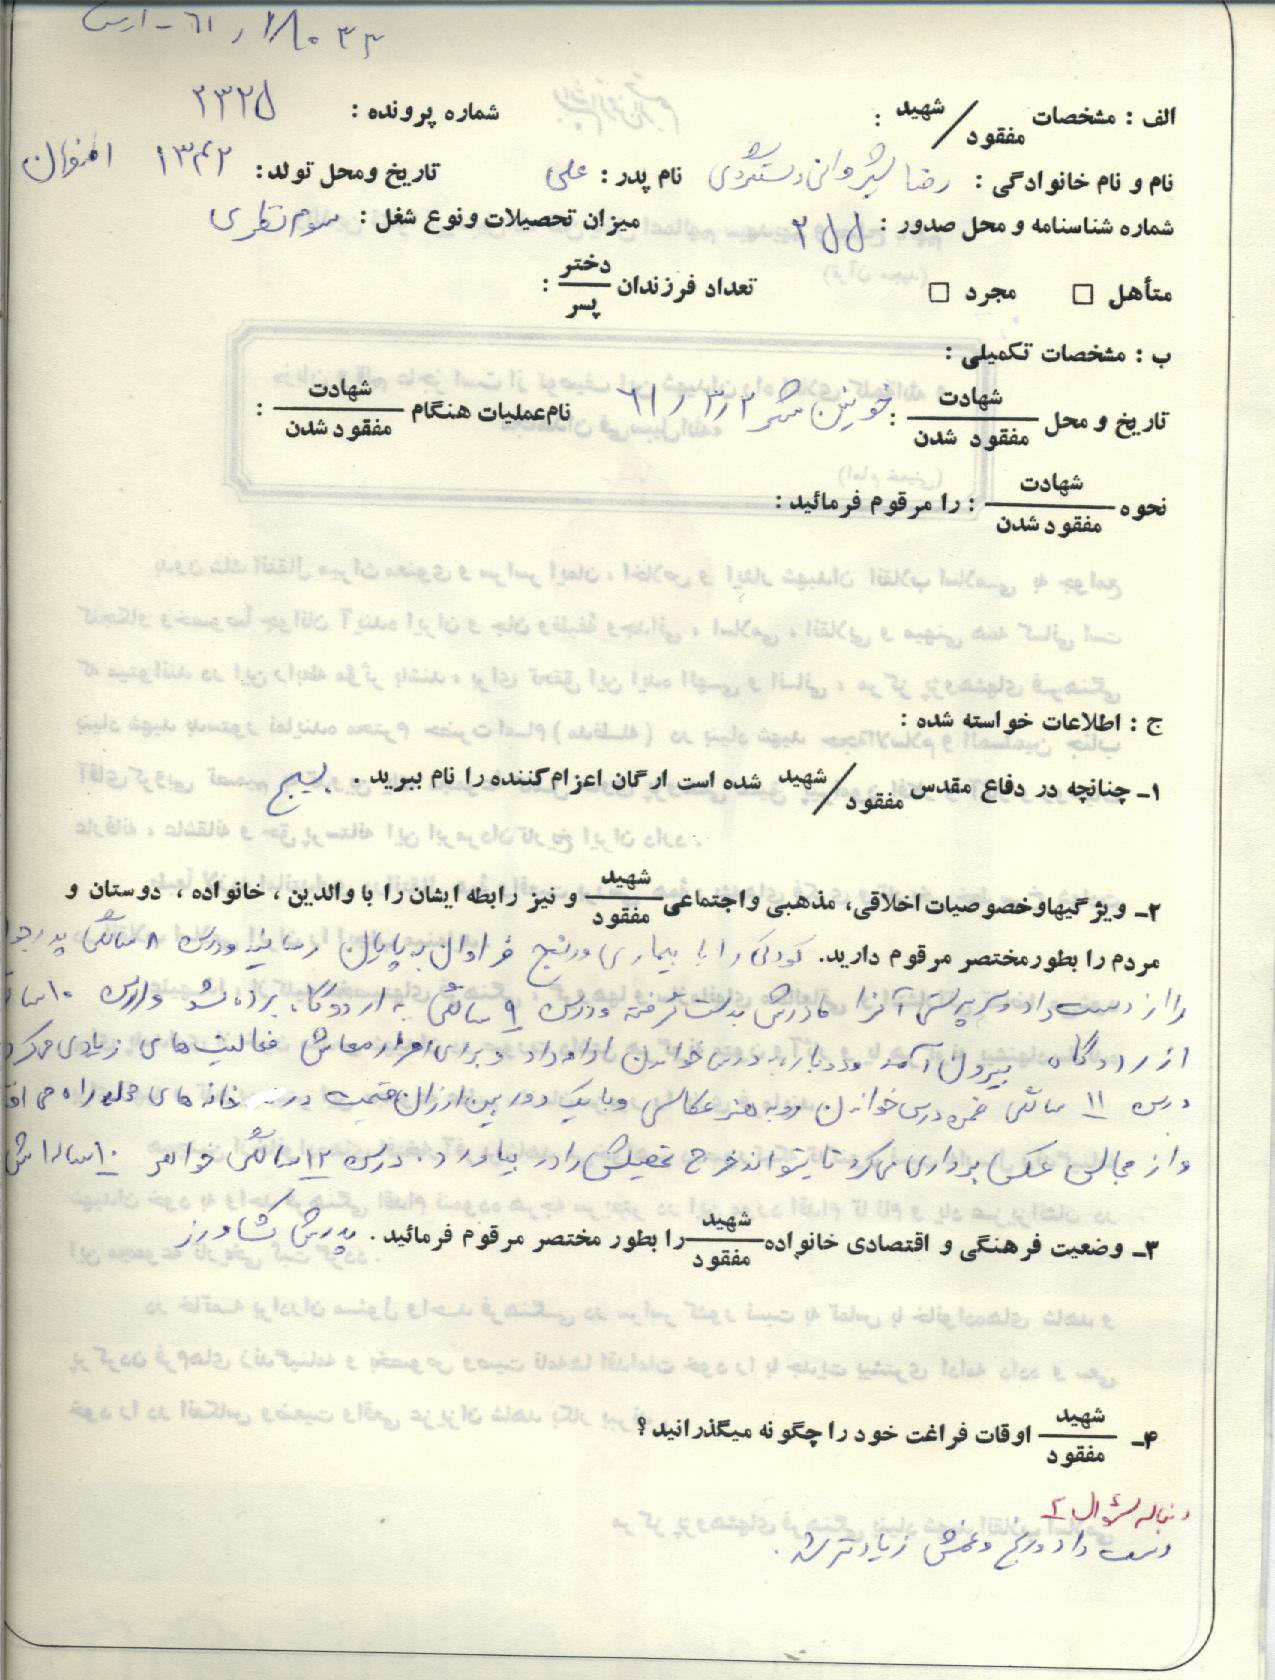 الف : مشخصات شهید / مفقود :
شماره پرونده : ۲۳۲۵
نام و نام خانوادگی : رضا شیروانی دستگردی نام پدر : علی تاریخ ومحل تولد : ۱۳۴۲ اصفهان
شماره شناسنامه و محل صدور : میزان تحصیلات ونوع شغل : سوم نظری
متأهل □ مجرد □ تعداد فرزندان دختر / پسر :
ب : مشخصات تکمیلی :
تاریخ و محل شهادت / مفقود شدن : خونین شهر ۶۱/۳/۲ نام عملیات هنگام شهادت / مفقود شدن :
نحوه شهادت / مفقود شدن : را مرقوم فرمائید :
ج : اطلاعات خواسته شده :
۱ـ چنانچه در دفاع مقدس شهید / مفقود شده است ارگان اعزام کننده را نام ببرید . بسیج
۲ـ ویژگیهاوخصوصیات اخلاقی، مذهبی واجتماعی شهید / مفقود و نیز رابطه ایشان را با والدین ، خانواده ، دوستان و
مردم را بطور مختصر مرقوم دارید. کودکی را با بیماری و رنج فراوان به پایان رسانید و در سن ۸ سالگی پدر
را از دست داد و سرپرستی آنرا مادرش بدست گرفته و در سن ۹ سالگی به اردوگاه برده شد و در سن ۱۰
از اردوگاه بیرون آمد و دوباره به درس خواندن ادامه داد و برای امرار معاش فعالیت های زیادی می کرد
در سن ۱۱ سالگی ضمن درس خواندن رو به هنر عکاسی و با یک دوربین ارزان قیمت در خانه های محله راه می
و از مجالس عکس برداری می کرد تا بتواند خرج تحصیلش را در بیاورد . در سن ۱۲ سالگی خواهر ۱۰ ساله اش
۳ـ وضعیت فرهنگی و اقتصادی خانواده شهید / مفقود را بطور مختصر مرقوم فرمائید . پدرش کشاورز
۴ـ شهید / مفقود اوقات فراغت خود را چگونه میگذرانید ؟
دنباله سئوال ۲
دست داد و رنج و غمش زیادتر شد .